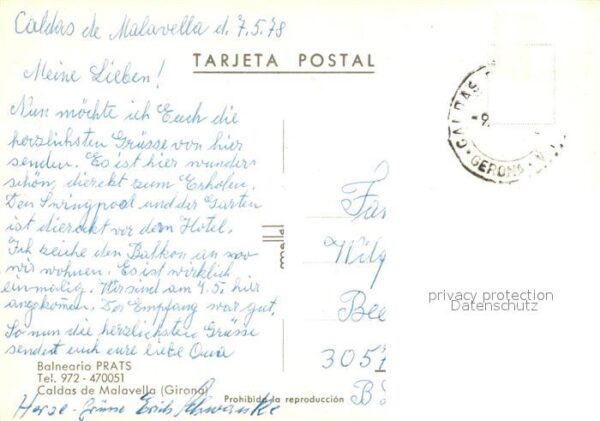 Caldas de Malavella d. 7.5.78
TARJETA POSTAL
Meine Lieben!
Nun möchte ich Euch die
herzlichsten Grüsse von hier
senden. Es ist hier wunder-
schön, dierekt zum Erholen.
Den Swingpool und der Garten
ist dierekt vor dem Hotel.
Ich zeiche den Balkon an wo
wir wohnen. Es ist wirklich
einmalig. Wir sind am 4.5. hier
angekomen. Der Empfang war gut.
So nun die herzlichsten Grüsse
sendet euch eure liebe Oma
Balneario PRATS
Tel. 972 - 470051
Caldas de Malavella (Girona)
Prohibida la reproducción
Herze-Grüsse Erich
Fam
Wilh
Bee
305
CALDAS
9
GERONA
privacy protection
Datenschutz